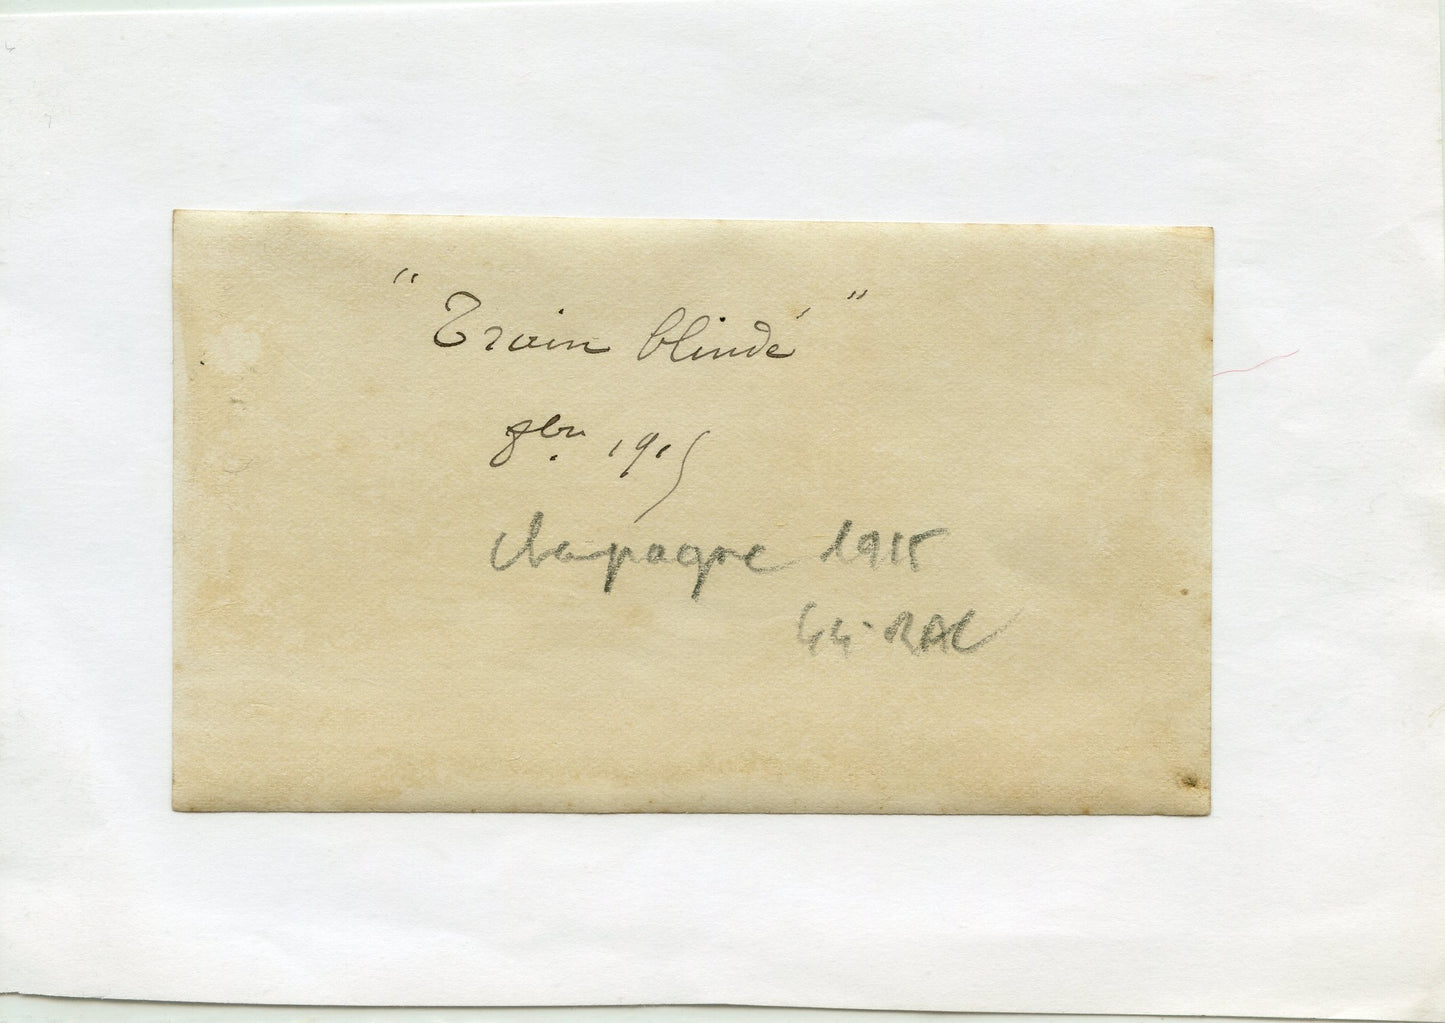 " Train blindé "
8bre 1915
Champagne 1915
44 - RAC